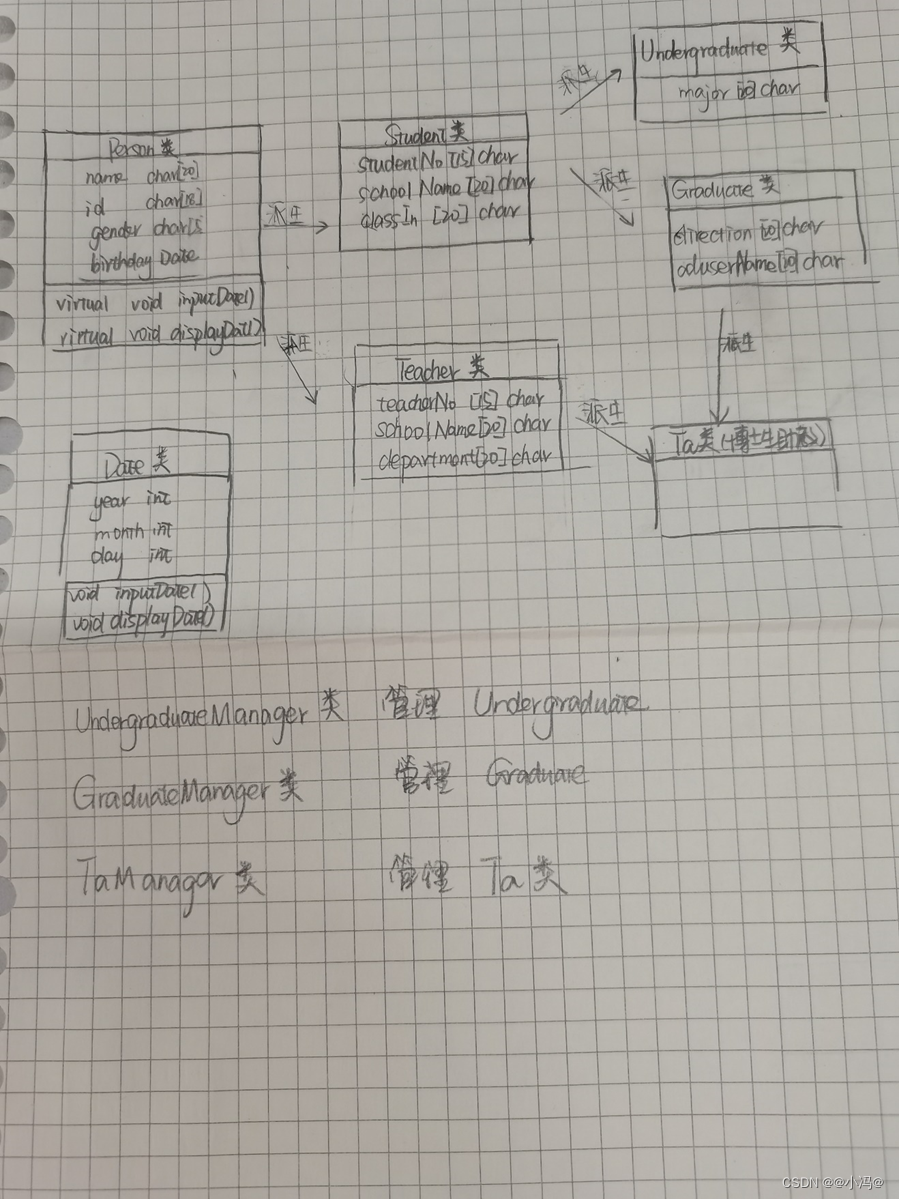 Person类
name char[20]
id char[18]
gender char[5
birthday Date
virtual void inputDate()
virtual void displayDate()
派生
Student类
studentNo [15] char
schoolName [20] char
classIn [20] char
派生
Undergraduate 类
major char
派生
Graduate 类
direction char
char
派生
派生
Teacher 类
teacherNo [15] char
schoolName[20] char
department[20] char
派生
Ta类(博士生助教)
Date 类
year int
month int
day int
void inputDate()
void displayDate()
UndergraduateManager 类 管理 Undergraduate
GraduateManager 类 管理 Graduate
TaManager 类 管理 Ta 类
CSDN @@小冯@